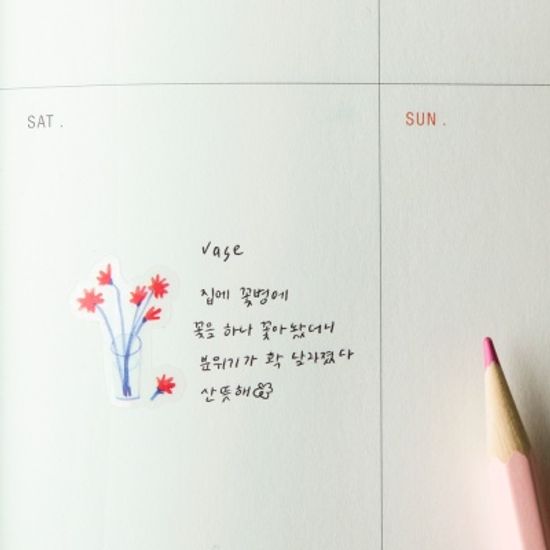 SAT.
SUN.
Vase
집에 꽃병에
꽃을 하나 꽂아놨더니
분위기가 확 달라졌다
산뜻해